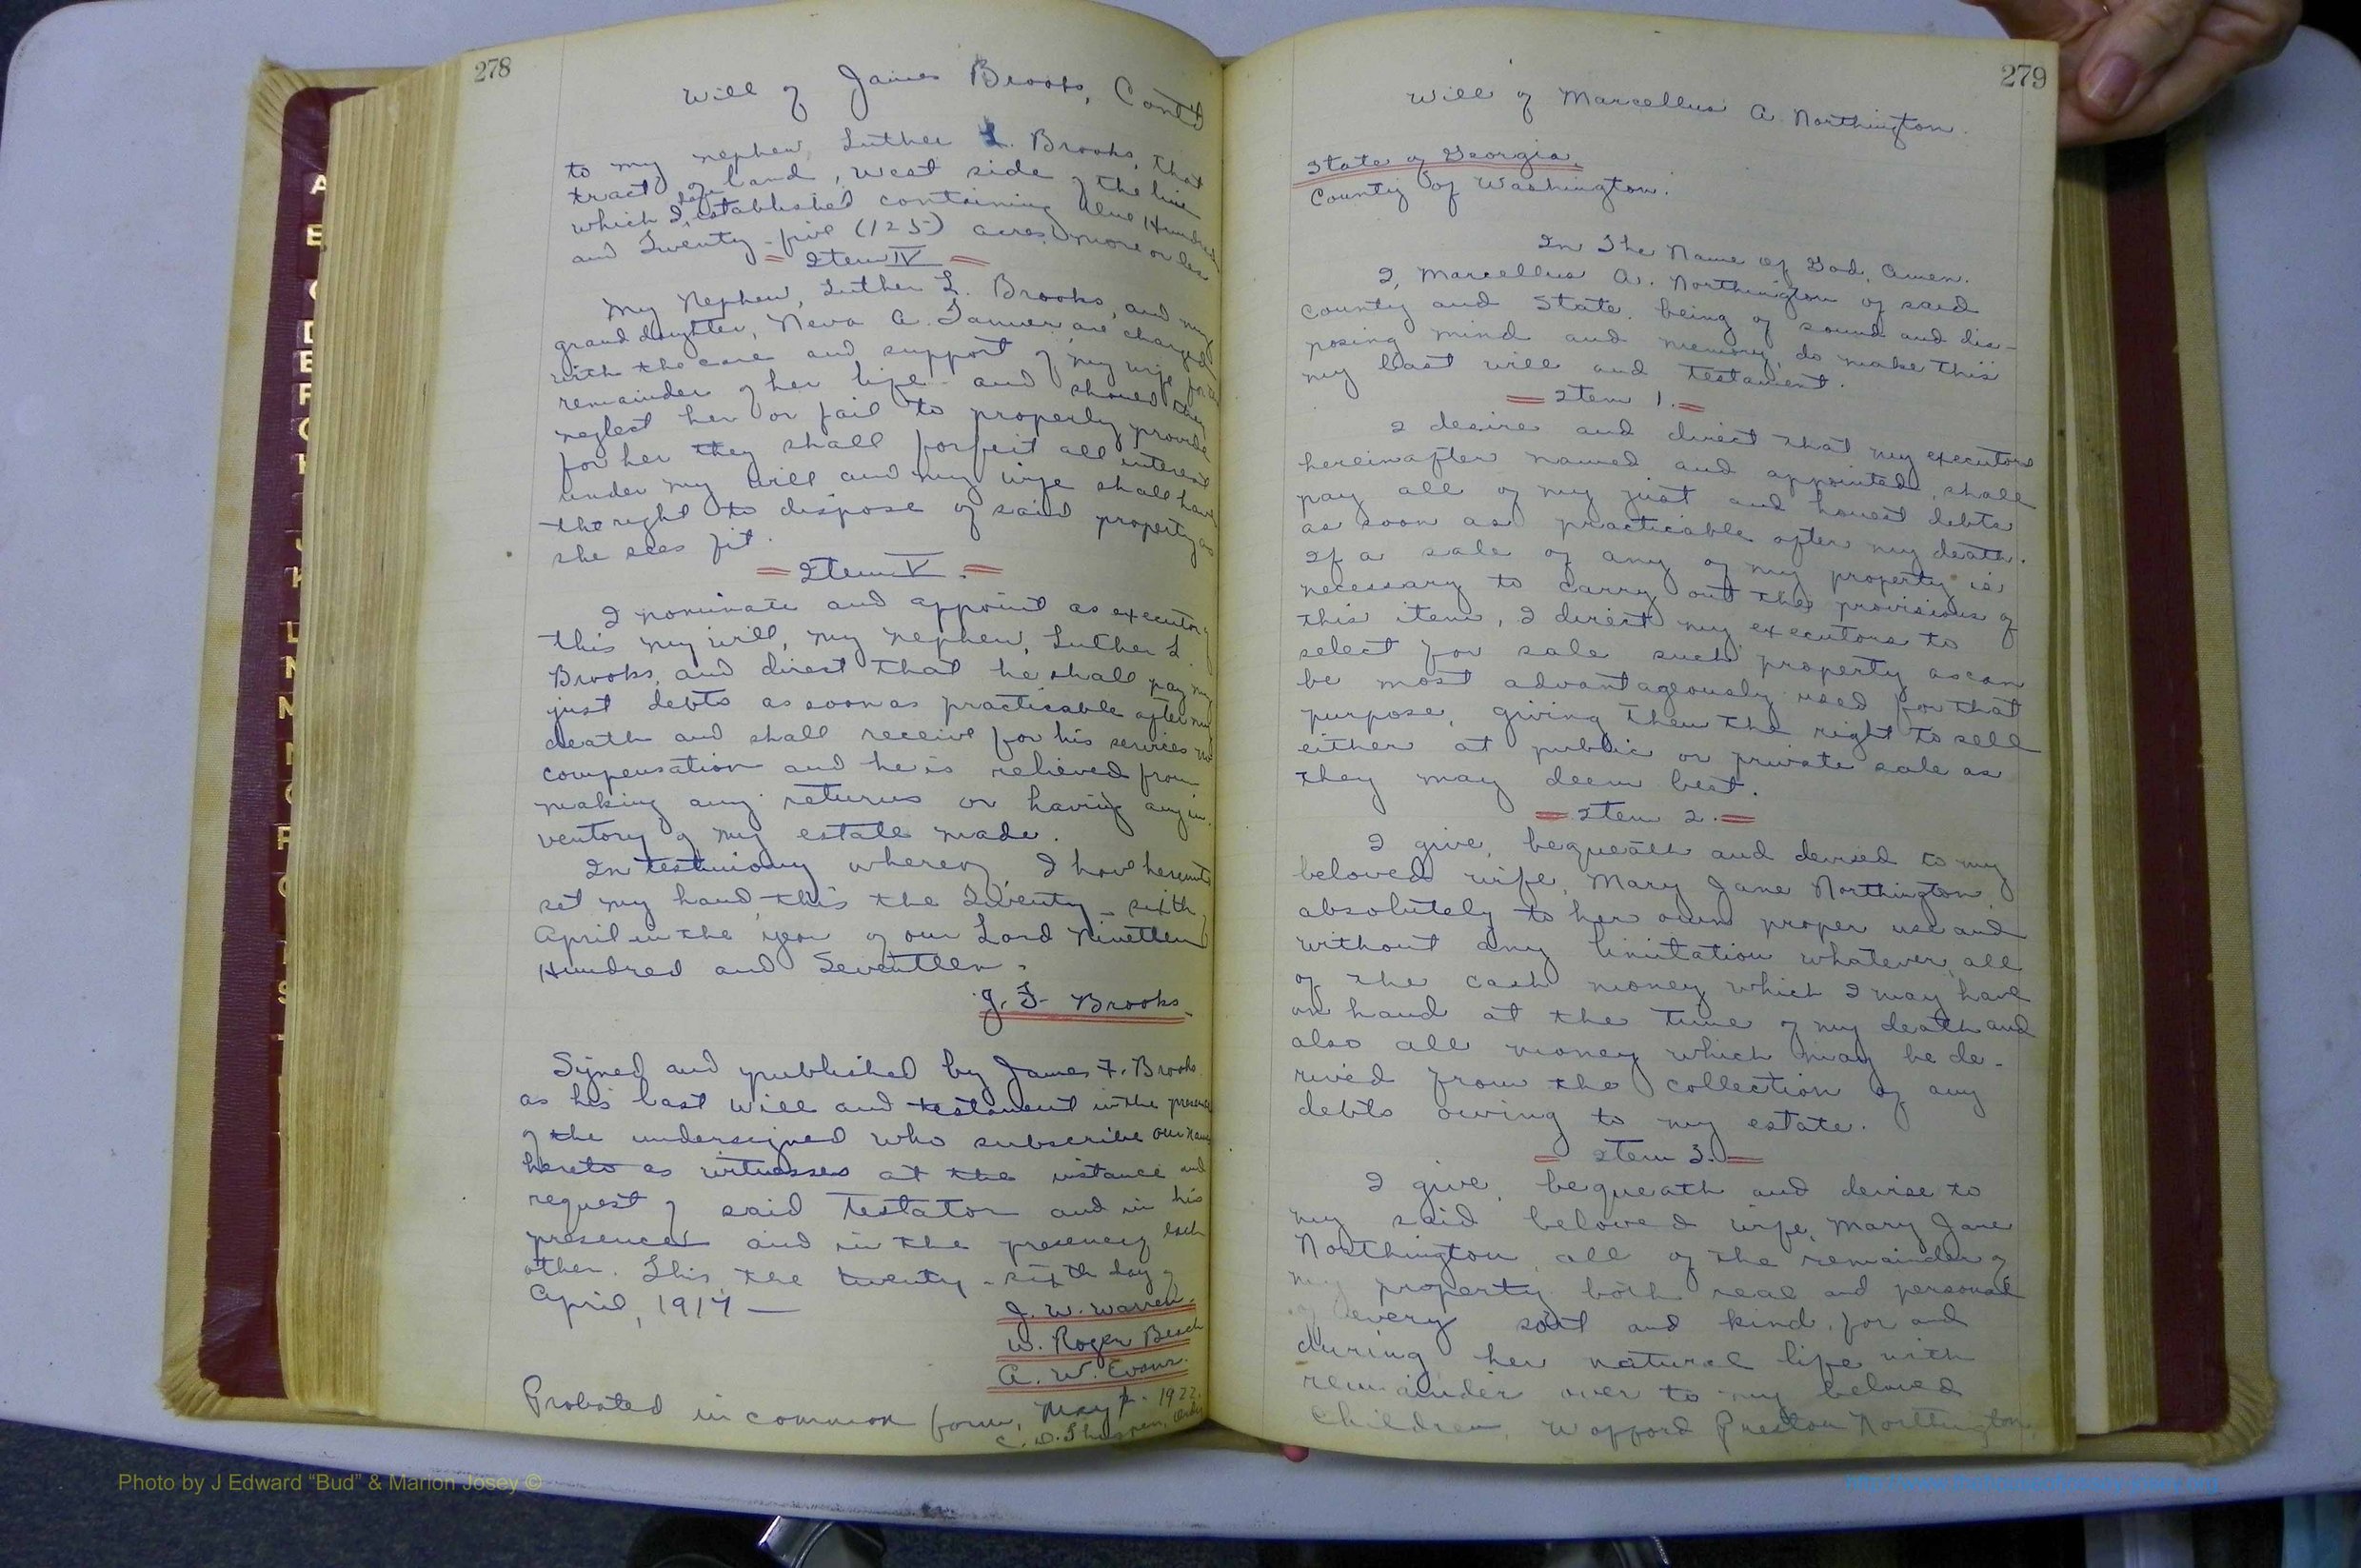 278
Will of James Brooks, Cont'd
to my nephew, Luther L. Brooks, that
tract of land, west side of the line
which I established containing One Hundred
and Twenty-five (125) acres, more or less
Item IV
My Nephew, Luther L. Brooks, and my
grand daughter, Neva A. Tanner are charged
with the care and support of my wife for the
remainder of her life - and should they
neglect her or fail to properly provide
for her they shall forfeit all interest
under my will and my wife shall have
the right to dispose of said property as
she sees fit.
Item V.
I nominate and appoint as executor of
this my will, my nephew, Luther L.
Brooks, and direct that he shall pay my
just debts as soon as practicable after my
death and shall receive for his services no
compensation and he is relieved from
making any returns or having any in-
ventory of my estate made.
In testimony whereof, I have hereunto
set my hand, this the Twenty-sixth,
April in the year of our Lord Nineteen
Hundred and Seventeen.
J. F. Brooks.
Signed and published by James F. Brooks
as his last will and testament in the presence
of the undersigned who subscribe our names
hereto as witnesses at the instance and
request of said Testator and in his
presence and in the presence of each
other. This the twenty-sixth day of
April, 1917 —
J. W. Warren.
W. Roger Beach
A. W. Evans.
Probated in common form, May 1922.
279
Will of Marcellus A. Northington.
State of Georgia,
County of Washington.
In The Name of God, Amen.
I, Marcellus A. Northington of said
County and State, being of sound and dis-
posing mind and memory, do make this
my last will and testament.
Item 1.
I desire and direct that my executors
hereinafter named and appointed, shall
pay all of my just and honest debts
as soon as practicable after my death.
If a sale of any of my property is
necessary to carry out the provisions of
this item, I direct my executors to
select for sale such property as can
be most advantageously used for that
purpose, giving them the right to sell
either at public or private sale as
they may deem best.
Item 2.
I give, bequeath and devised to my
beloved wife, Mary Jane Northington,
absolutely to her own proper use and
without any limitation whatever, all
of the cash money which I may have
on hand at the time of my death and
also all money which may be de-
rived from the collection of any
debts owing to my estate.
Item 3.
I give, bequeath and devise to
my said beloved wife, Mary Jane
Northington, all of the remainder of
my property both real and personal
of every sort and kind, for and
during her natural life with
remainder over to my beloved
Children, Wofford Preston Northington,
Photo by J Edward “Bud” & Marion Josey ©